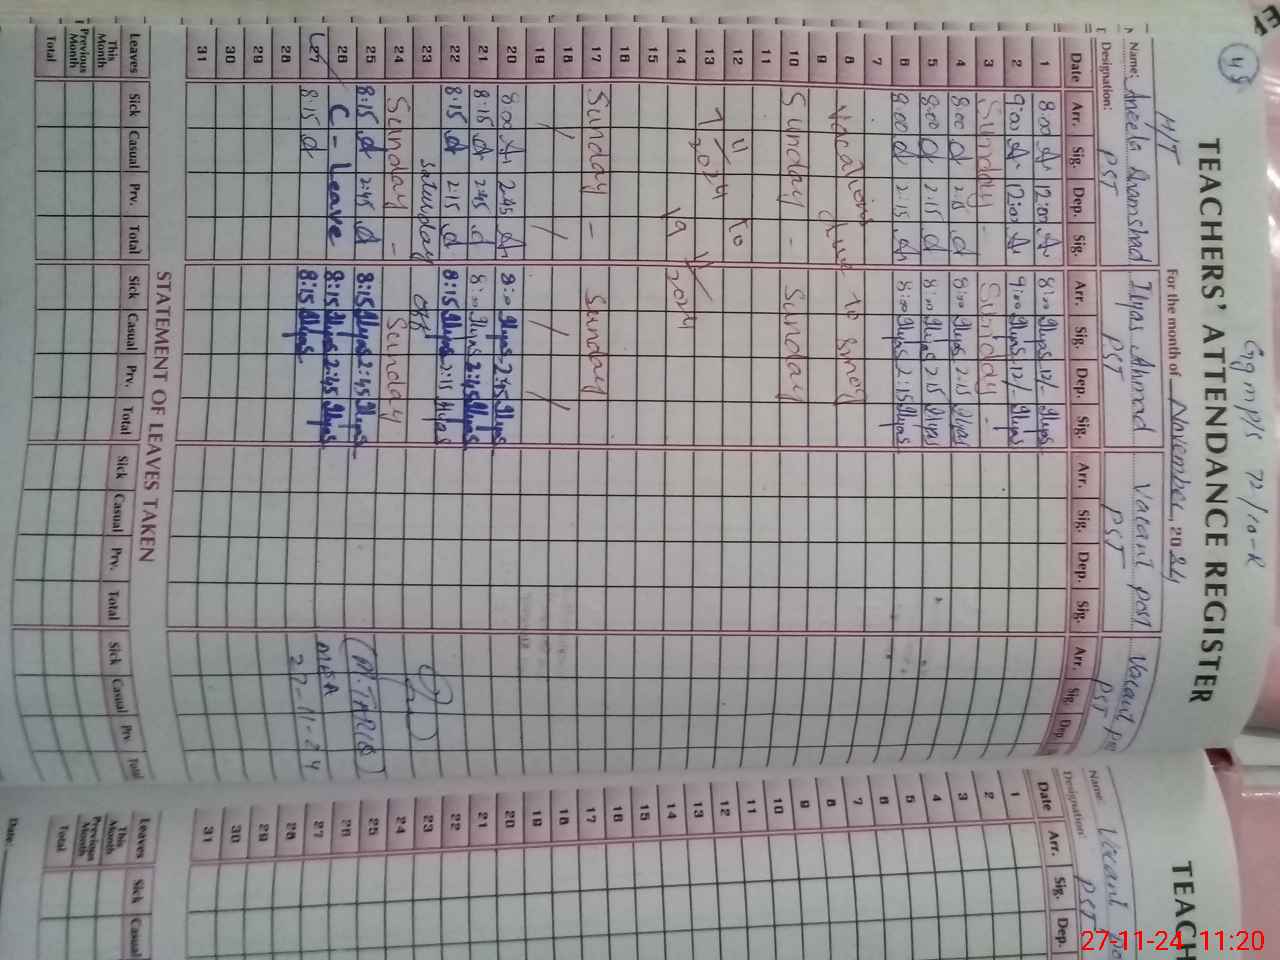 48
Ggmp/s 72/10-R
TEACHERS' ATTENDANCE REGISTER
For the month of November, 2024
H/T
Name: Aneela Aramshad Ilyas Ahmad Vacant post Vacant
Designation: PST PST PST PST
Date Arr. Sig. Dep. Sig. Arr. Sig. Dep. Sig. Arr. Sig. Dep. Sig. Arr. Sig. Dep.
1 8:00 12:00 8:00 Ilyas 12/- Ilyas
2 9:00 12:00 9:00 Ilyas 12/- Ilyas
3 Sunday - Sunday -
4 8:00 2:15 8:00 Ilyas 2:15 Ilyas
5 8:00 2:15 8:00 Ilyas 2:15 Ilyas
6 8:00 2:15 8:00 Ilyas 2:15 Ilyas
7
8 Vacations due to smog
9
10 Sunday - Sunday
11
12
13 7/11/2024 to
14 19/11/2024
15
16
17 Sunday - Sunday
18
19
20 8:00 2:45 8:00 Ilyas 2:45 Ilyas
21 8:15 2:45 8:00 Ilyas 2:45 Ilyas
22 8:15 2:15 8:15 Ilyas 2:15 Ilyas
23 Saturday off
24 Sunday - Sunday
25 8:15 2:45 8:15 Ilyas 2:45 Ilyas
26 C - Leave 8:15 Ilyas 2:45 Ilyas
27 8:15 8:15 Ilyas
28
29
30
31
(M. TARIQ)
MEA
27-11-24
STATEMENT OF LEAVES TAKEN
Leaves Sick Casual Prv. Total Sick Casual Prv. Total Sick Casual Prv. Total Sick Casual Prv. Total
This Month
Previous Month
Total
TEACH
Name: Vacant
Designation: PST
Date Arr. Sig. Dep.
1
2
3
4
5
6
7
8
9
10
11
12
13
14
15
16
17
18
19
20
21
22
23
24
25
26
27
28
29
30
31
Leaves Sick Casual
This Month
Previous Month
Total
Date:
27-11-24 11:20